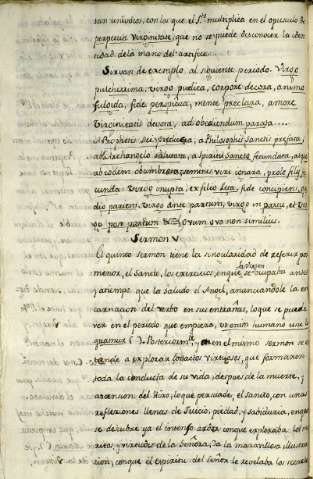 tan unívoco, con los que el Sto multiplica en el opusculo de
perpetua Virginitate, que no se puede desconocer la iden
tidad de la mano del artifice.
Servira de exemplo el siguiente periodo. Virgo
pulcherrima, virgo pudica, corpore decora, animo
fulgida, fide perspicua, mente praeclara, amore
Virginitatis devota, ad obediendum parata....
A Prophetis Dei praedicta, a Philosophis sanctis praefata,
ab Archangelo salutata, a Spiritu Sancto fecundata, atque
ab eodem obumbrata
cunda: virgo inupta, ex filio fide concipiens,
dio parients, virgo ante partum, virgo in partu, et vir
go post partum
Sermon V
El quinto sermon tiene la singularidad de referir por
menor, el santo, los exercicios, en que se ocupaba antes
la Virgen
y al tiempo que la saludó el Angel, anunciandole la en
carnacion del verbo en sus entrañas, lo que se puede
ver en el periodo que empieza, ut etiam humano
quamur. Posteriormte en el mismo sermon se es
tiende a explorar los actos virtuosos, que formaron
toda la conducta de su vida, despues de la muerte, y
ascension del Hijo, lo que persuade, el santo, con unas
reflexiones llenas de juicio, piedad, y sabiduria, en que
se descubre ya el intenso ardor con que exploraba los me
ritos, y virtudes de la Señora, ya la maravillosa ilustra
cion, con que el espiritu del Señor le revelaba los